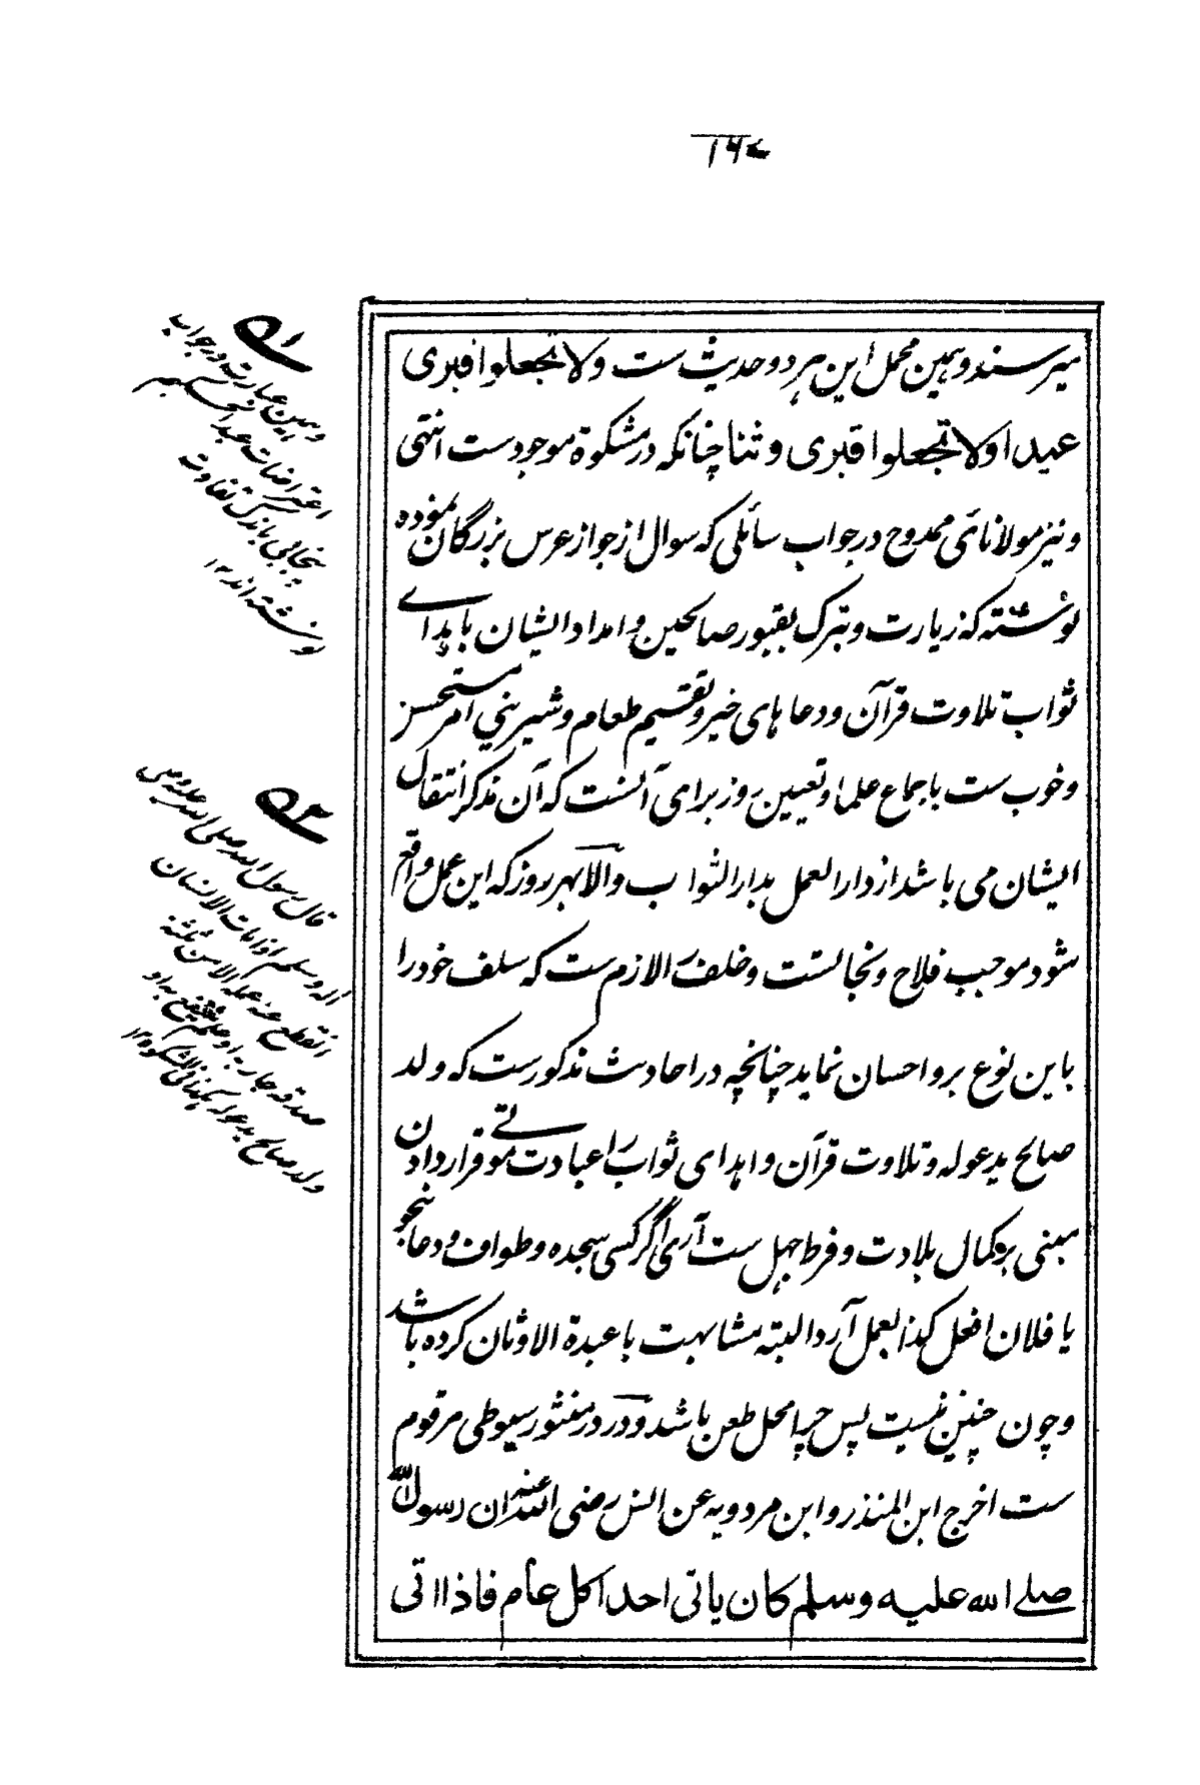 ۱۶۴
میرسند و همین محمل این هر دو حدیث ست ولا تجعلوا قبری
عیدا ولا تجعلوا قبری وثنا چنانکه در مشکوة موجود ست انتهی
و نیز مولانای ممدوح در جواب سائلی که سوال از جواز عرس بزرگان نموده
نوشته که زیارت و تبرک بقبور صالحین و امداد ایشان باهدای
ثواب تلاوت قرآن و دعاهای خیر و تقسیم طعام و شیرینی امر مستحسن
و خوب ست باجماع علما و تعیین روز برای آنست که آن مذکر انتقال
ایشان می باشد از دار العمل بدار الثواب والا بهر روز که این عمل واقع
شود موجب فلاح و نجات ست و خلف را لازم ست که سلف خود را
باین نوع بر و احسان نماید چنانچه در احادیث مذکور ست که ولد
صالح یدعو له و تلاوت قرآن و اهدای ثواب را عبادت موتی قرار دادن
مبنی بر کمال بلادت و فرط جهل ست آری اگر کسی سجده و طواف و دعا بنحو
یا فلان افعل کذا بعمل آرد البته مشابهت با عبدة الاوثان کرده باشد
و چون چنین نیست پس چرا محل طعن باشد و در در منثور سیوطی مرقوم
ست اخرج ابن المنذر و ابن مردویه عن انس رضی الله عنه ان رسول الله
صلے الله علیه وسلم کان یاتی احدا کل عام فاذا اتی
۵۱
و همین عبارت در جواب
اعتراضات عبد الحکیم
پنجابی باندک تفاوت
نوشته اند ۱۲
۵۲
قال رسول الله صلی الله علیه وعلی
اله وسلم اذا مات الانسان
انقطع عنه عمله الا من ثلثة
صدقة جاریة او علم ینتفع به او
ولد صالح یدعو له هکذا فی المشکوة ۱۲